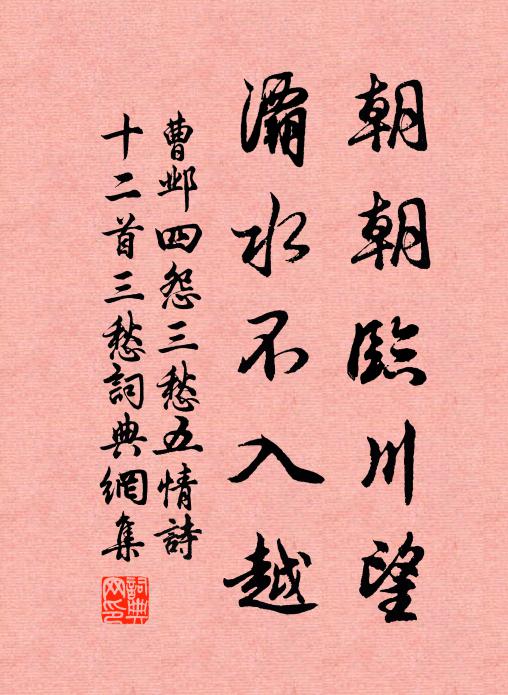 朝朝臨川望
灞水不入越
曹邺四怨三愁五情詩
十二首三愁詞典網集
詞典
网印